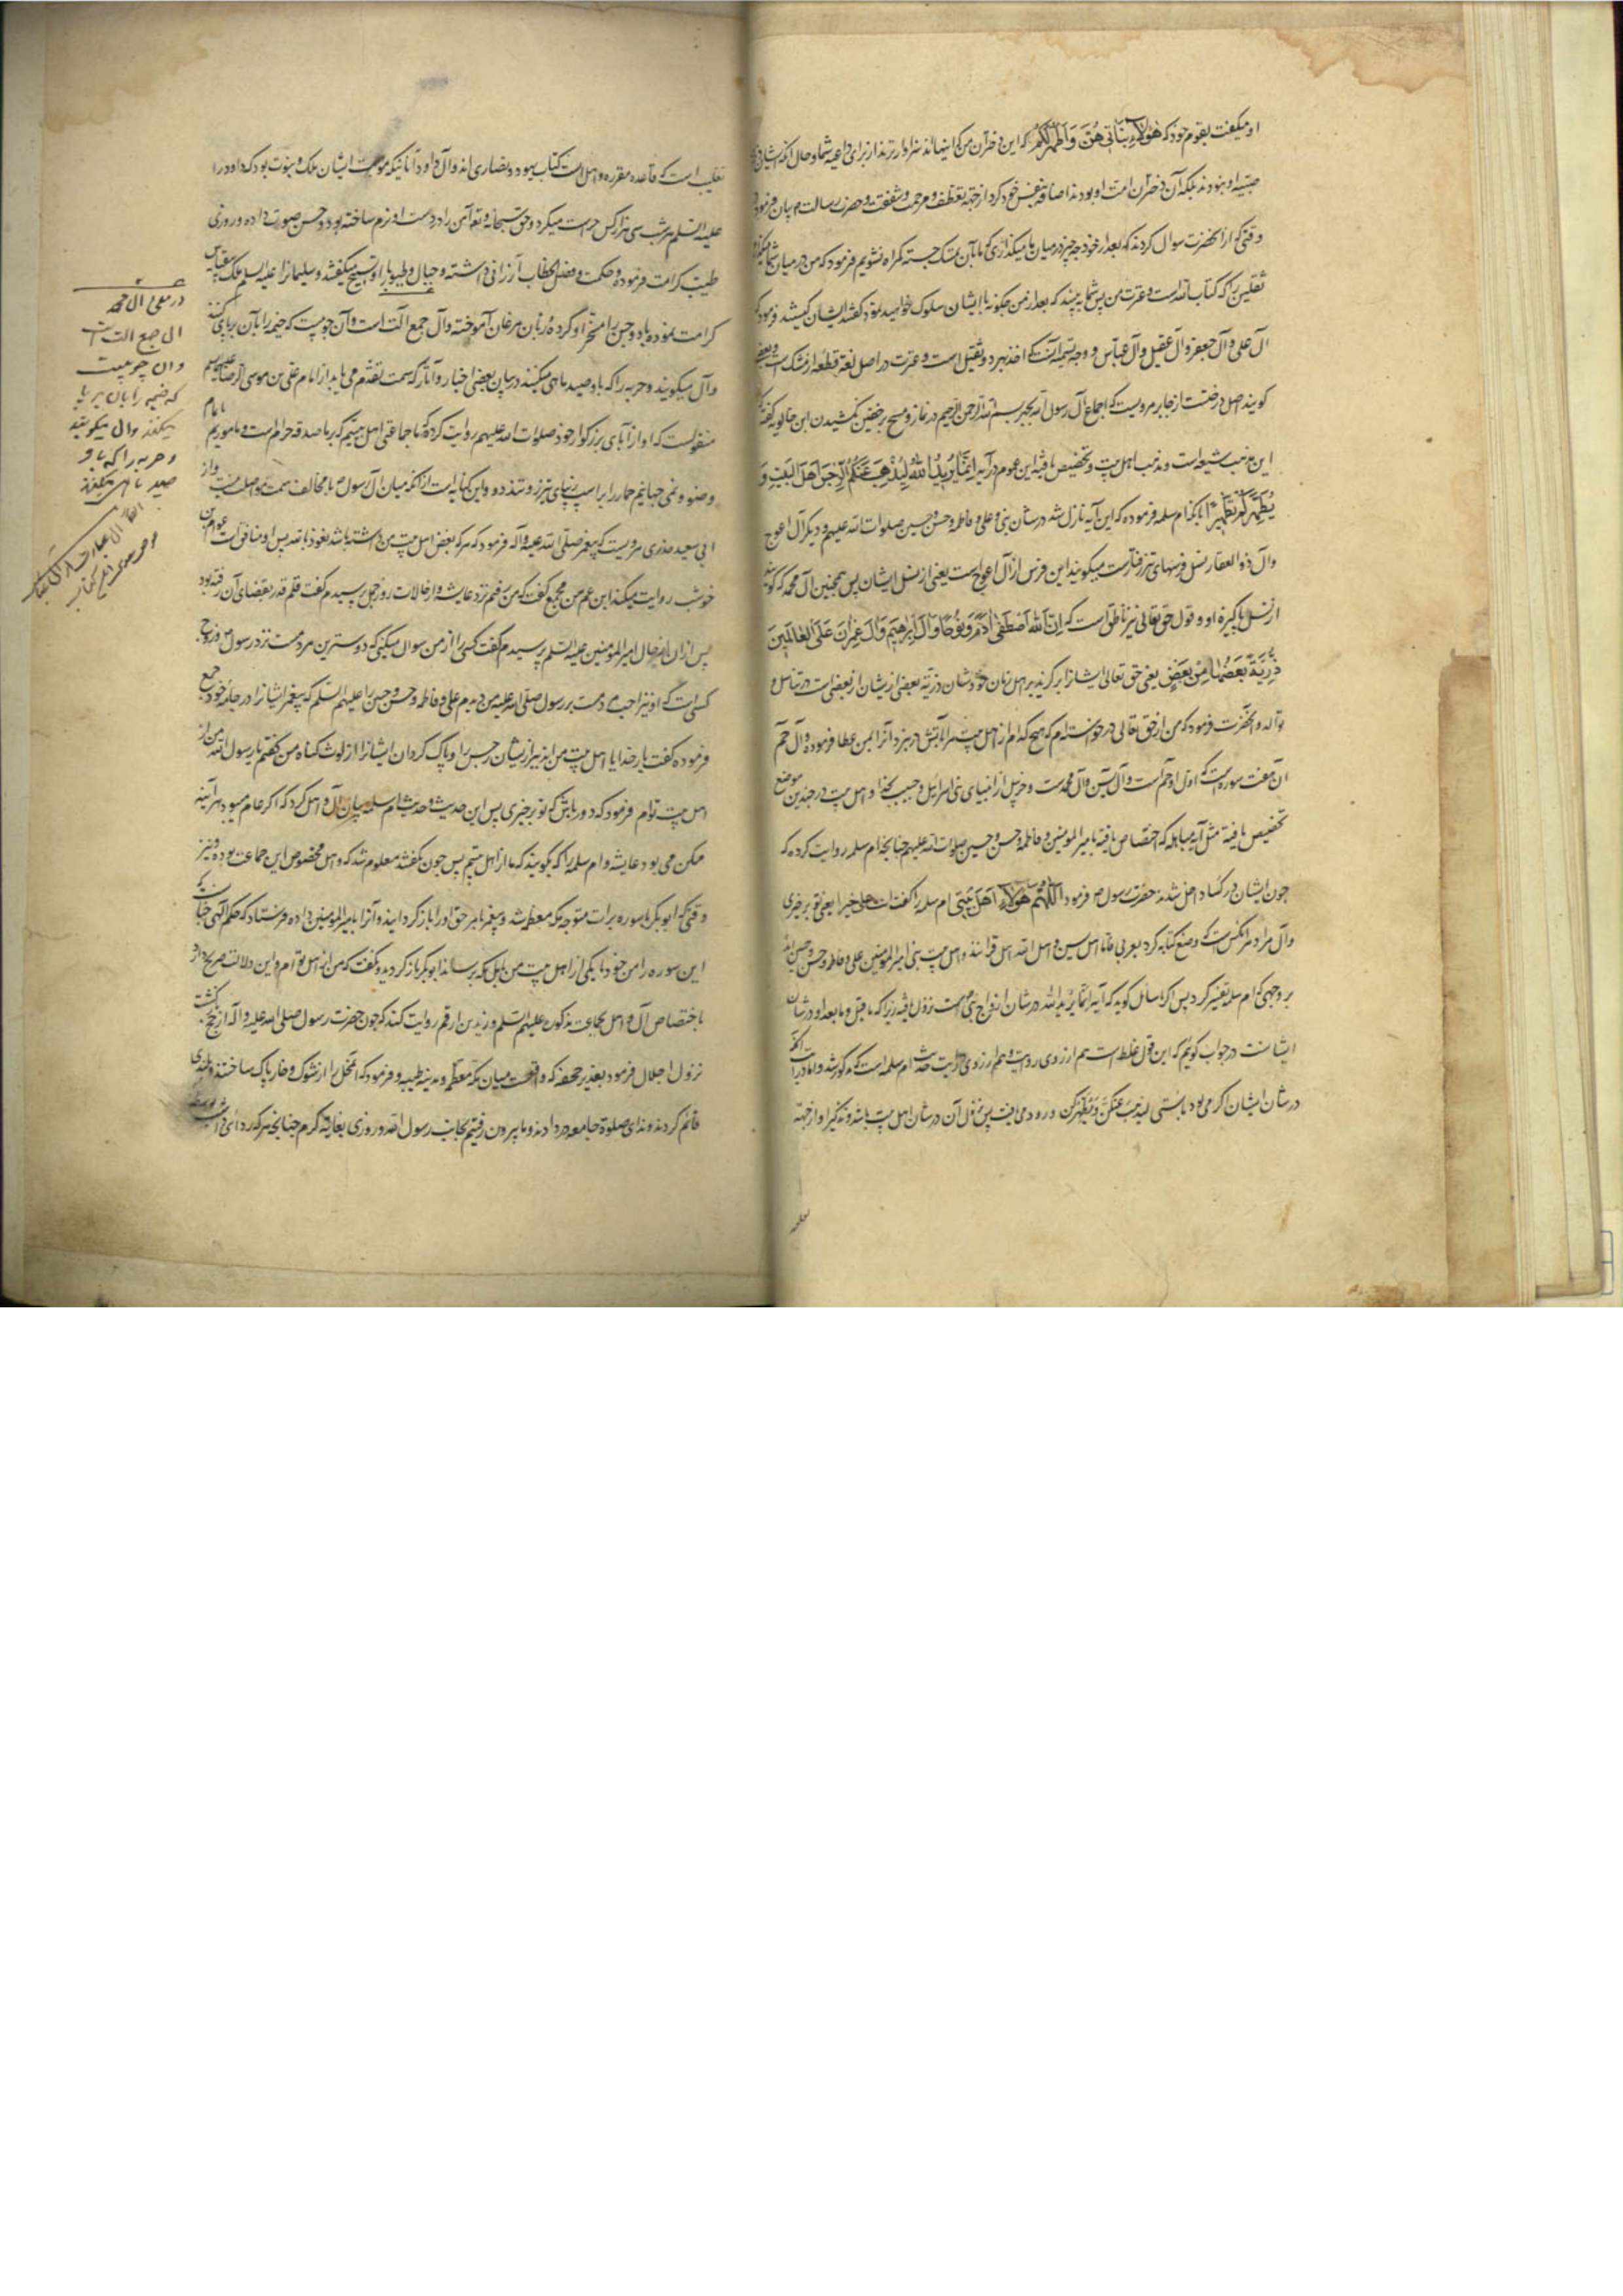 او میگفت بقوم خود که هؤلاء بناتی هن و اطهر لکم که این دختران من که اینهااند سزاوارترند از برای داعیه شما و حال آنکه ایشان
نبودند بلکه آن دختران امت او بودند اضافه بنفس خود کرد از جهة تعطف و مرحمت و شفقت و حضرت رسالت م بیان فرمود
وقتی که از آنحضرت سوال کردند که بعد از خود چه چیز در میان ما میگذاری که ما بآن تمسک جسته گمراه نشویم فرمود که من در میان شما میگذارم
ثقلین را که کتاب الله است و عترت من پس شما به بینید که بعد از من چگونه با ایشان سلوک خواهید نمود گفتند ایشان کیستند فرمود که
آل علی و آل جعفر و آل عقیل و آل عباس و وجه تسمیه آنست که اخذ بهر دو ثقیل است و عترت در اصل لغة قطعه از مشک است و بعضی
گویند اصل درختست از جابر مرویست که اجماع آل رسول الله بجهر بسم الله الرحمن الرحیم در نماز و مسح بر خفین نکشیدن ابن خالویه گفته که
این مذهب شیعه است و مذهب اهل بیت و تخصیص یافته این عموم در آیه انما یرید الله لیذهب عنکم الرجس اهل البیت و
یطهرکم تطهیرا ام سلمه فرموده که این آیه نازل شد در شان نبی و علی و فاطمه و حسن و حسین صلوات الله علیهم و دیگر آل اعوج
و آل ذو العقار نسل فرسهای تیز رفتارست میگویند این فرس از آل اعوج است یعنی از نسل ایشان پس همچنین آل محمد که گویند
از نسل پاکیزه او و قول حق تعالی نیز ناطق است که ان الله اصطفی آدم و نوحا و آل ابرهیم و آل عمران علی العالمین
ذریة بعضها من بعض یعنی حق تعالی ایشانرا برگزید بر اهل زمان خودشان ذریة بعضی ازیشان از بعضی است در تناسل و
و آنحضرت فرمود که من از حق تعالی درخواسته ام که هیچ کدام از اهل بیت مرا بآتش در نبرد آنرا بمن عطا فرموده و آل حم
آن هفت سوره است که اول او حم است و آل یس و آل محمدست و حزبیل از انبیای بنی اسرائیل و حبیب نجار و اهل بیت در چندین موضع
تخصیص یافته مثل آیه مباهله که اختصاص یافته بامیر المومنین و فاطمه و حسن و حسین صلوات الله علیهم چنانچه ام سلمه روایت کرده که
چون ایشان در کسا داخل شدند حضرت رسول م فرمود اللهم هؤلاء اهل بیتی ام سلمه را گفت انت علی خیر یعنی تو بر خیری
و اهل الله اهل قرآنند و اهل بیت نبی امیر المومنین علی و فاطمه و حسن و حسین اند
بر وجهی که ام سلمه تفسیر کرد پس اگر سائل گوید که آیه انما یرید الله در شان ازواج نبی م سمت نزول یافته زیرا که ما قبل و ما بعد او در شان
ایشانست در جواب گوئیم که این قول غلط است هم از روی روایت و هم از روی درایت حدیث ام سلمه است که مذکور شد و اما درایت آنکه
در شان ایشان اگر می بود بایستی لیذهب عنکن و یطهرکن ورود می یافت پس نزول آن در شان اهل بیت باشد و تذکیر او از جهة
تغلیب است که قاعده مقرره و اهل کتاب یهود و نصاری اند و آل داود آنانیکه موهبت ایشان ملک و نبوت بود که داود را
علیه السلم هر شب سی هزار کس حراست میکرد و حق سبحانه و تع آهن را در دست او نرم ساخته بود و حسن صورت داده و روزی
طیب کرامت فرموده و حکمت و فصل الخطاب ارزانی داشته و جبال و طیور با او تسبیح میگفتند و سلیمانرا علیه السلم ملک بیقیاس
کرامت نموده باد و جن را مسخر او کرده و زبان مرغان آموخته و آل جمع آلت است و آن چوبیست که خیمه را بآن بر پای کنند
و آل میگویند و حربه را که باو صید ماهی میکنند در بیان بعضی اخبار و آثار که سمت تقدم می یابد از امام علی بن موسی الرضا علیهم السلم
منقولست که او از آبای بزرگوار خود صلوات الله علیهم روایت کرد که ما جماعتی اهل بیتیم که بر ما صدقه حرام است و ماموریم باتمام
وضو و نمی جهانیم حمار را بر اسپ و این کنایه ایست از آنکه میان آل رسول ما مخالف سمت تواصل نیست و از
ابی سعید خدری مرویست که پیغمبر صلی الله علیه و آله فرمود که هر که بغض اهل بیت من داشته باشد نعوذ بالله پس او منافق است
روایت میکند ابن عم من مجمع گفت که من رفتم نزد عایشه و از حالات روز جمل پرسیدم گفت قلم قدر بقضای آن رفته بود
پس از آن از حال امیر المومنین علیه السلم پرسیدم گفت کسی را از من سوال میکنی که دوسترین مردمست نزد رسول م و زوج
کسی است که او نیز احب مردمست بر رسول صلی الله علیه من دیدم علی و فاطمه و حسن و حسین را علیهم السلم که پیغمبر ایشانرا در جامه خود جمع
فرموده گفت بار خدایا اهل بیت من اند ببر ازیشان رجس را و پاک گردان ایشانرا از لوث گناه من گفتم یا رسول الله من از
اهل بیت توام فرمود که دور باش که تو بر خیری پس این حدیث و حدیث ام سلمه بیان آل و اهل کرد که اگر عام میبود هر آینه
ممکن می بود عایشه و ام سلمه را که بگویند که ما از اهل بیتیم پس چون نگفتند معلوم شد که و اهل مخصوص این جماعت بوده و نیز
وقتی که ابو بکر با سوره برات متوجه مکه معظمه شد و پیغمبر بامر حق او را باز گردانید و آنرا بامیر المومنین داده فرستاد که حکم الهی چنانست که
این سوره را من خود یا یکی از اهل بیت من باهل مکه برساند ابو بکر باز گردید و گفت که من از اهل تو ام و این دلالت صریح دارد
باختصاص آل و اهل بجماعت مذکور علیهم السلم و زید بن ارقم روایت کند که چون حضرت رسول صلی الله علیه و آله از حج باز گشت
نزول اجلال فرمود بغدیر جحفه که واقعست میان مکه معظمه و مدینه طیبه و فرمود که آنمحل را از شوک و خار پاک ساختند و بلندی
قائم کردند و ندای صلوة جامعه در دادند و ما بیرون رفتیم بجانب رسول الله و روزی بغایة گرم چنانچه هر که ردائی داشت
در معنی آل محمد
آل جمع آلت است
و آن چوبیست
که خیمه را بآن بر پا
میکنند و آل میگویند
و حربه را که باو
صید ماهی میکنند